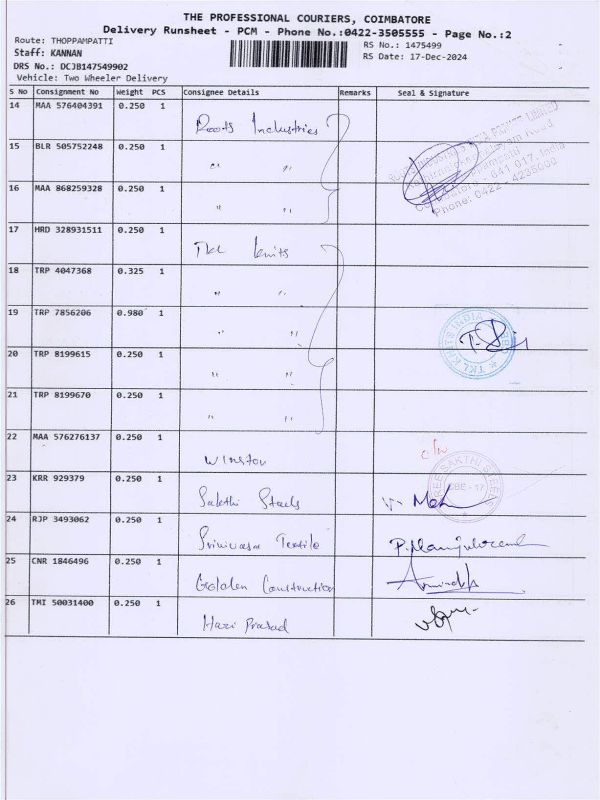 THE PROFESSIONAL COURIERS, COIMBATORE
Delivery Runsheet - PCM - Phone No.:0422-3505555 - Page No.:2
Route: THOPPAMPATTI
Staff: KANNAN
DRS No.: DCJB147549902
Vehicle: Two Wheeler Delivery
RS No.: 1475499
RS Date: 17-Dec-2024
S No Consignment No Weight PCS Consignee Details Remarks Seal & Signature
14 MAA 576404391 0.250 1
Roots Industries
15 BLR 505752248 0.250 1
" "
16 MAA 868259328 0.250 1
" "
17 HRD 328931511 0.250 1
TKL knits
18 TRP 4047368 0.325 1
" "
19 TRP 7856206 0.980 1
" "
20 TRP 8199615 0.250 1
" "
21 TRP 8199670 0.250 1
" "
22 MAA 576276137 0.250 1
Winston
23 KRR 929379 0.250 1
Sakthi Steels
24 RJP 3493062 0.250 1
Srinivasa Textile
25 CNR 1846496 0.250 1
Golden Construction
26 TMI 50031400 0.250 1
Hari Prasad
641 017, India
Phone: 0422 - 4235000
TKL KNITS INDIA
SREE SAKTHI STEELS
CBE - 17